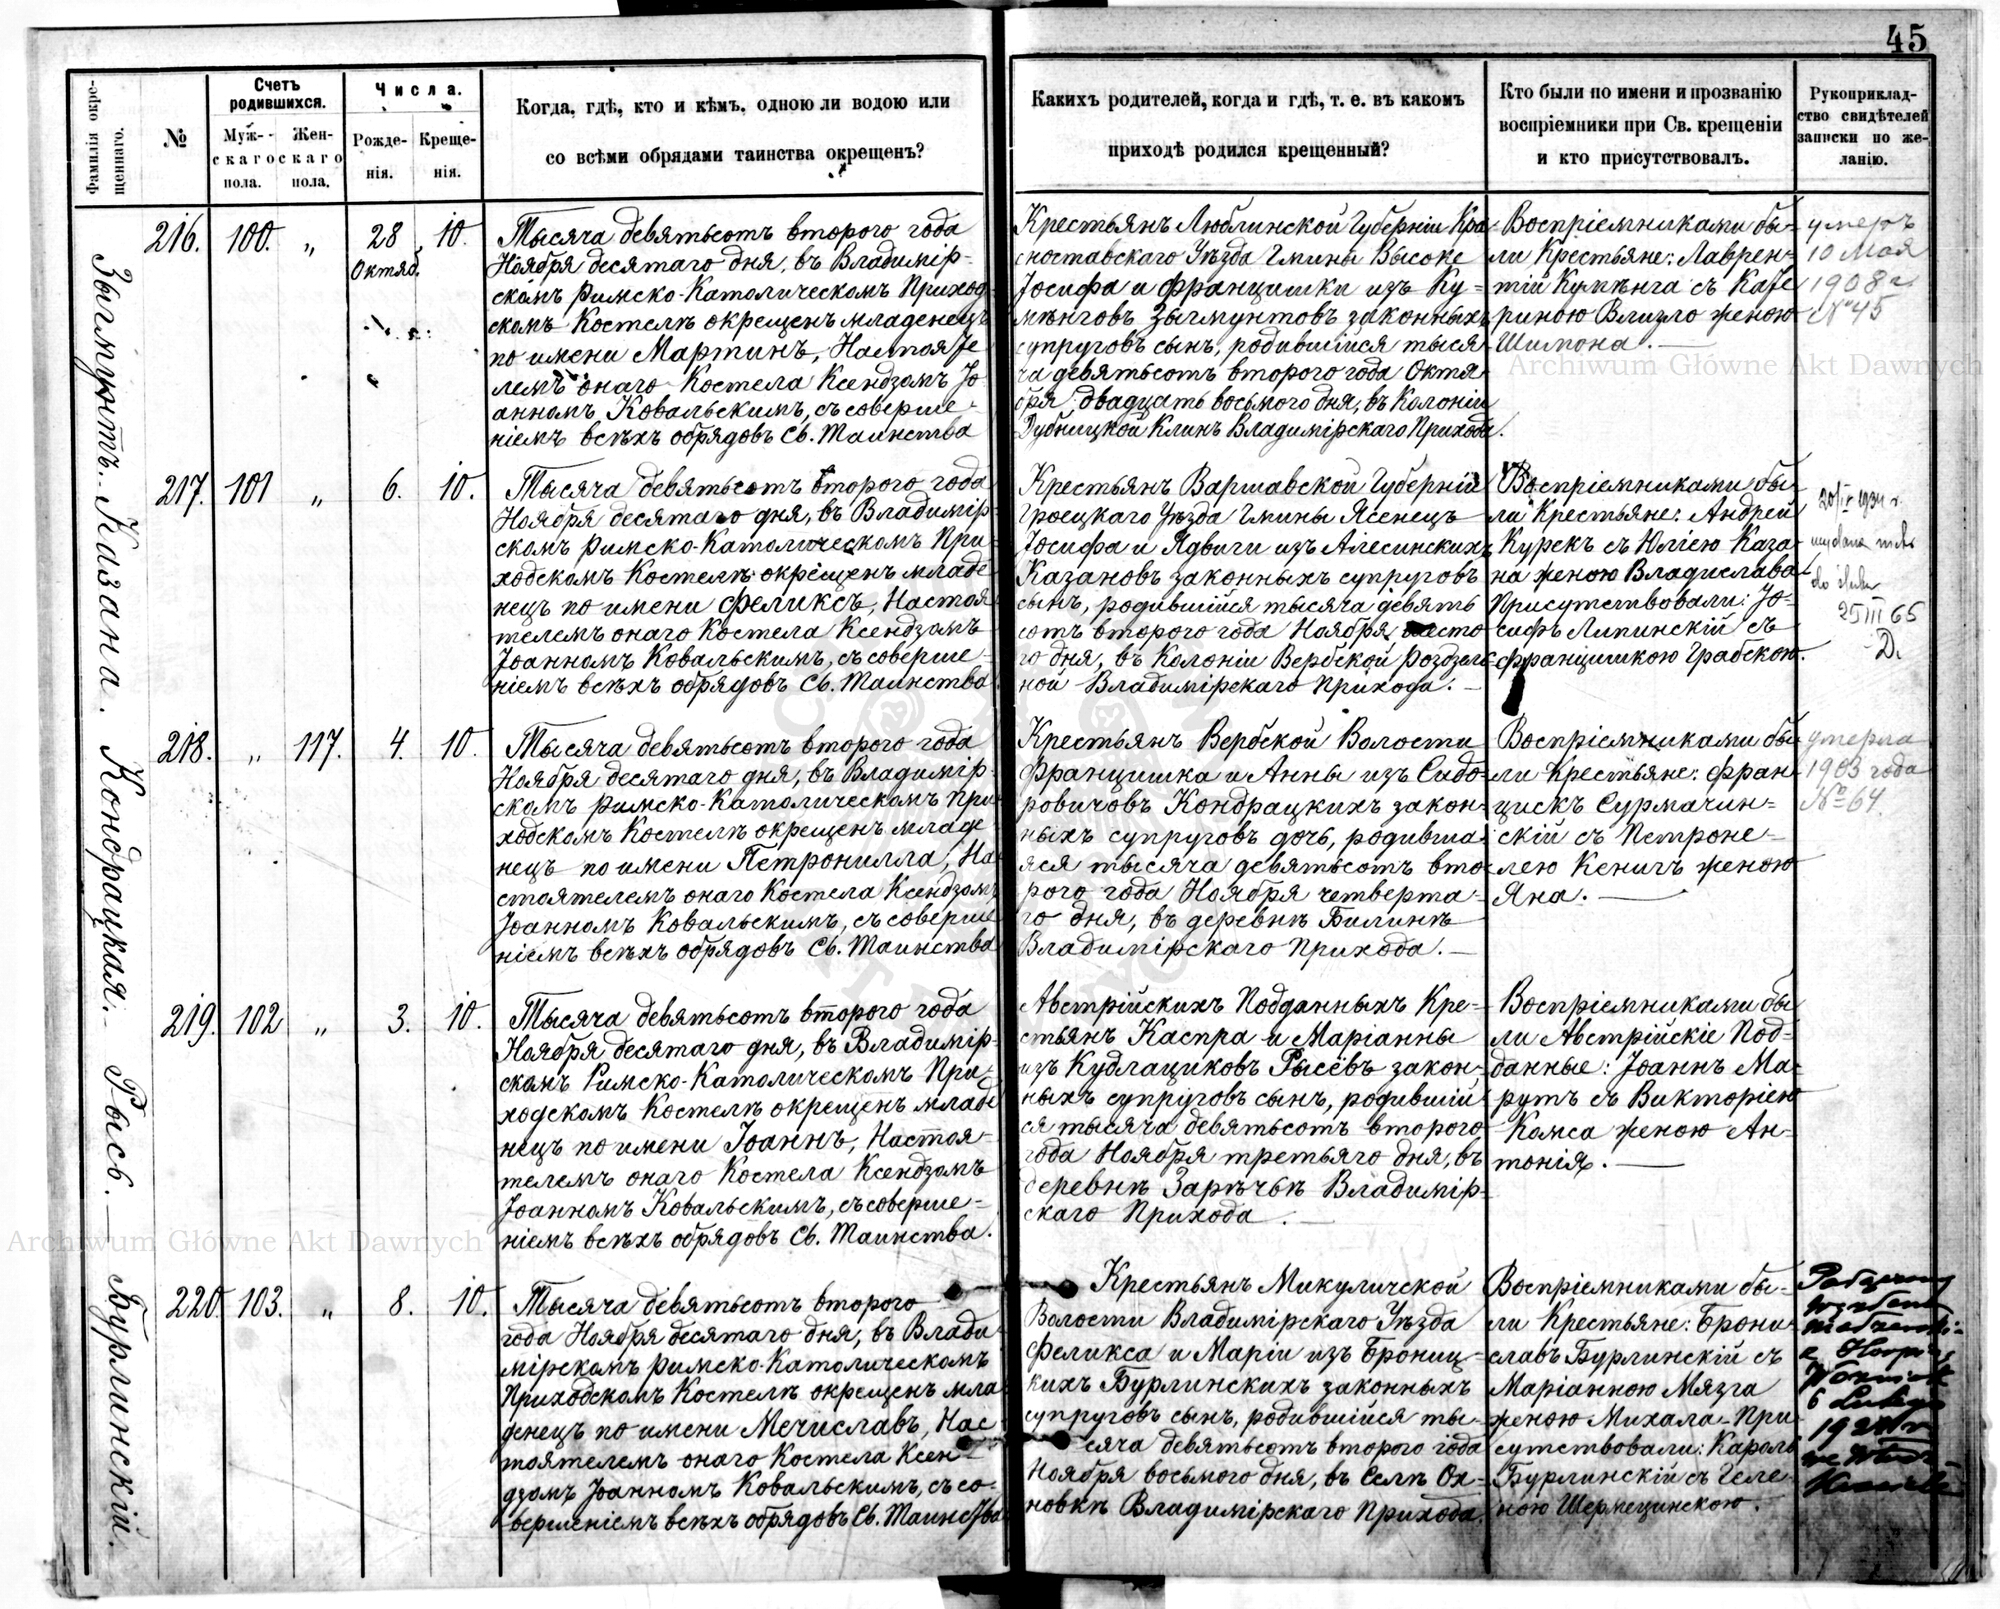 45
Фамилія окре-
щеннаго.
№
Счетъ
родившихся.
Муж-
скаго
пола.
Жен-
скаго
пола.
Числа.
Рожде-
нія.
Креще-
нія.
Когда, гдѣ, кто и кѣмъ, одною ли водою или
со всѣми обрядами таинства окрещенъ?
Какихъ родителей, когда и гдѣ, т. е. въ какомъ
приходѣ родился крещенный?
Кто были по имени и прозванію
воспріемники при Св. крещеніи
и кто присутствовалъ.
Рукоприклад-
ство свидѣтелей
записки по же-
ланію.
Зыгмунтъ.
216. 100. „ 28 10.
Октяб.
Тысяча девятьсотъ втораго года
Ноября десятаго дня, въ Владимір-
скомъ Римско-Католическомъ Приход-
скомъ Костелѣ окрещенъ младенецъ
по имени Мартинъ, Настояте
лемъ онаго Костела Ксендзомъ Іо
анномъ Ковальскимъ, съ соверше-
ніемъ всѣхъ обрядовъ Св. Таинства
Крестьянъ Люблинской Губерніи Кра-
сноставскаго Уѣзда Гмины Высоке
Іосифа и Францишки изъ Ку-
мѣнговъ Зыгмунтовъ законныхъ
супруговъ сынъ, родившійся тыся
ча девятьсотъ втораго года Октя-
бря двадцать восьмого дня, въ Колоніи
Дубницкой Клинъ Владимірскаго Прихода.
Воспріемниками бы-
ли Крестьяне: Лаврен-
тій Кумѣнга съ Кате
риною Влизло женою
Шимона.
умеръ
10 Мая
1908 г.
№ 45
Казана.
217. 101 „ 6. 10.
Тысяча девятьсотъ втораго года
Ноября десятаго дня, въ Владимір-
скомъ Римско-Католическомъ При-
ходскомъ Костелѣ окрещенъ младе
нецъ по имени Феликсъ, Настоя
телемъ онаго Костела Ксендзомъ
Іоанномъ Ковальскимъ, съ соверше-
ніемъ всѣхъ обрядовъ Св. Таинства
Крестьянъ Варшавской Губерніи
Гроецкаго Уѣзда Гмины Ясенецъ
Іосифа и Ядвиги изъ Алесинскихъ
Казановъ законныхъ супруговъ
сынъ, родившійся тысяча девять
сотъ втораго года Ноября шесто
го дня, въ Колоніи Вербской Роздзель-
ной Владимірскаго Прихода.
Воспріемниками бы-
ли Крестьяне: Андрей
Курекъ съ Юліею Каза-
на женою Владислава
Присутствовали: Іо-
сифъ Липинскій съ
Францишкою Грабскою.
25 III 65
D.
Кондрацкая.
218. „ 117. 4. 10.
Тысяча девятьсотъ втораго года
Ноября десятаго дня, въ Владимір-
скомъ Римско-Католическомъ При-
ходскомъ Костелѣ окрещенъ младе
нецъ по имени Петронилла, На-
стоятелемъ онаго Костела Ксендзомъ
Іоанномъ Ковальскимъ, съ соверше
ніемъ всѣхъ обрядовъ Св. Таинства
Крестьянъ Вербской Волости
Францишка и Анны изъ Сидо-
ровичовъ Кондрацкихъ закон-
ныхъ супруговъ дочь, родивша-
яся тысяча девятьсотъ вто-
рого года Ноября четверта-
го дня, въ деревнѣ Билинѣ
Владимірскаго Прихода.
Воспріемниками бы-
ли Крестьяне: Фран-
цискъ Сурмачин-
скій съ Петроне-
лею Кеничъ женою
Яна.
умерла
1903 года
№ 64
Рысь.
219. 102 „ 3. 10.
Тысяча девятьсотъ втораго года
Ноября десятаго дня, въ Владимір-
скомъ Римско-Католическомъ При-
ходскомъ Костелѣ окрещенъ младе
нецъ по имени Іоаннъ, Настоя-
телемъ онаго Костела Ксендзомъ
Іоанномъ Ковальскимъ, съ соверше-
ніемъ всѣхъ обрядовъ Св. Таинства.
Австрійскихъ Подданныхъ Кре-
стьянъ Каспра и Маріанны
изъ Кудлациковъ Рысёвъ закон-
ныхъ супруговъ сынъ, родившій
ся тысяча девятьсотъ второго
года Ноября третьяго дня, въ
деревнѣ Зарѣчьѣ Владимір-
скаго Прихода.
Воспріемниками бы
ли Австрійскіе Под-
данные: Іоаннъ Ма-
рутъ съ Викторіею
Комса женою Ан-
тонія.
Бурлинскій.
220. 103. „ 8. 10.
Тысяча девятьсотъ второго
года Ноября десятаго дня, въ Влади-
мірскомъ Римско-Католическомъ
Приходскомъ Костелѣ окрещенъ мла
денецъ по имени Мечиславъ, Нас-
тоятелемъ онаго Костела Ксен-
дзомъ Іоанномъ Ковальскимъ, съ со-
вершеніемъ всѣхъ обрядовъ Св. Таинства
Крестьянъ Микуличской
Волости Владимірскаго Уѣзда
Феликса и Маріи изъ Брониц-
кихъ Бурлинскихъ законныхъ
супруговъ сынъ, родившійся ты-
сяча девятьсотъ второго года
Ноября восьмого дня, въ Селѣ Ох-
новкѣ Владимірскаго Прихода.
Воспріемниками бы-
ли Крестьяне: Брони
славъ Бурлинскій съ
Маріанною Мязга
женою Михала. При-
сутствовали: Кароль
Бурлинскій съ Геле-
ною Шермецинскою.
6 Lutego
Archiwum Główne Akt Dawnych
Archiwum Główne Akt Dawnych